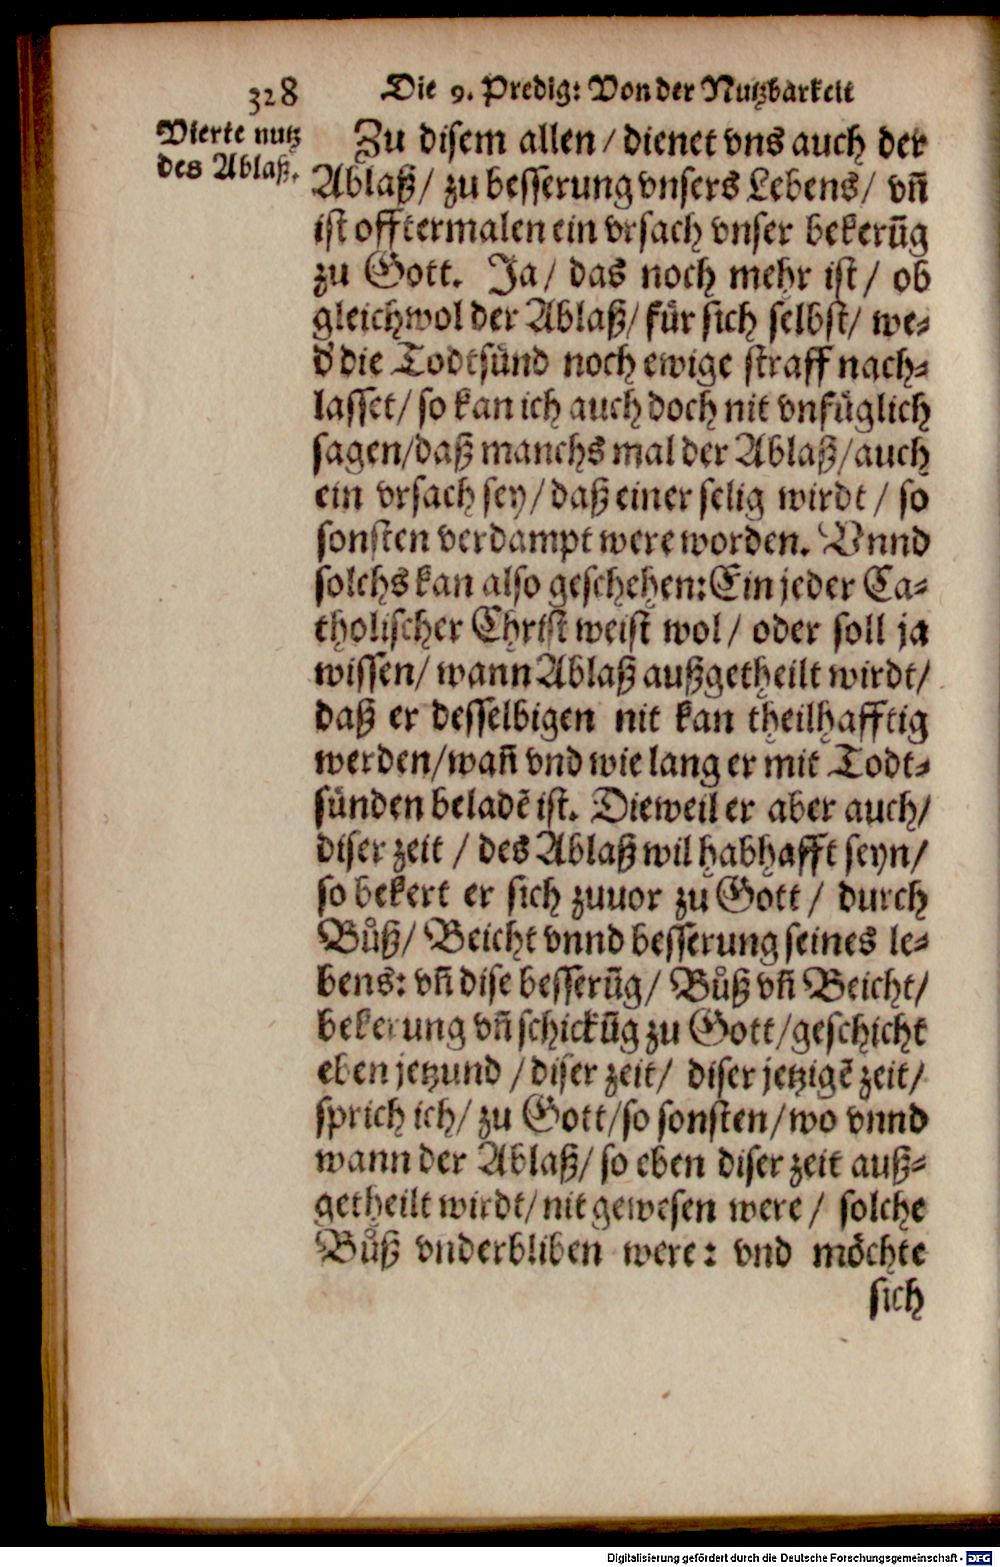 328 Die 9. Predig: Von der Nutzbarkeit
Vierte nutz
des Ablaß.
Zu disem allen / dienet vns auch der
Ablaß / zu besserung vnsers Lebens / vn̄
ist offtermalen ein vrsach vnser bekerūg
zu Gott. Ja / das noch mehr ist / ob
gleichwol der Ablaß / für sich selbst / we⸗
d' die Todtsünd noch ewige straff nach⸗
lasset / so kan ich auch doch nit vnfüglich
sagen / daß manchs mal der Ablaß / auch
ein vrsach sey / daß einer selig wirdt / so
sonsten verdampt were worden. Vnnd
solchs kan also geschehen: Ein jeder Ca⸗
tholischer Christ weist wol / oder soll ja
wissen / wann Ablaß außgetheilt wirdt /
daß er desselbigen nit kan theilhafftig
werden / wan̄ vnd wie lang er mit Todt⸗
sünden beladē ist. Dieweil er aber auch /
diser zeit / des Ablaß wil habhafft seyn /
so bekert er sich zuuor zu Gott / durch
Bůß / Beicht vnnd besserung seines le⸗
bens: vn̄ dise besserūg / Bůß vn̄ Beicht /
bekerung vn̄ schickūg zu Gott / geschicht
eben jetzund / diser zeit / diser jetzigē zeit /
sprich ich / zu Gott / so sonsten / wo vnnd
wann der Ablaß / so eben diser zeit auß⸗
getheilt wirdt / nit gewesen were / solche
Bůß vnderbliben were: vnd möchte
sich
Digitalisierung gefördert durch die Deutsche Forschungsgemeinschaft - DFG